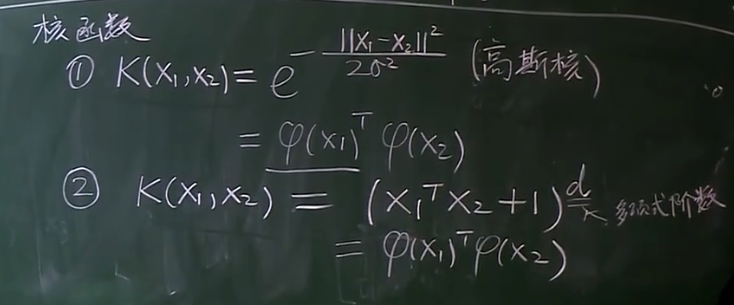 核函数
① K(X₁,X₂) = e^{-||X₁-X₂||²/2σ²} (高斯核)
= φ(X₁)ᵀ φ(X₂)
② K(X₁,X₂) = (X₁ᵀX₂+1)^d 多项式阶数
= φ(X₁)ᵀφ(X₂)